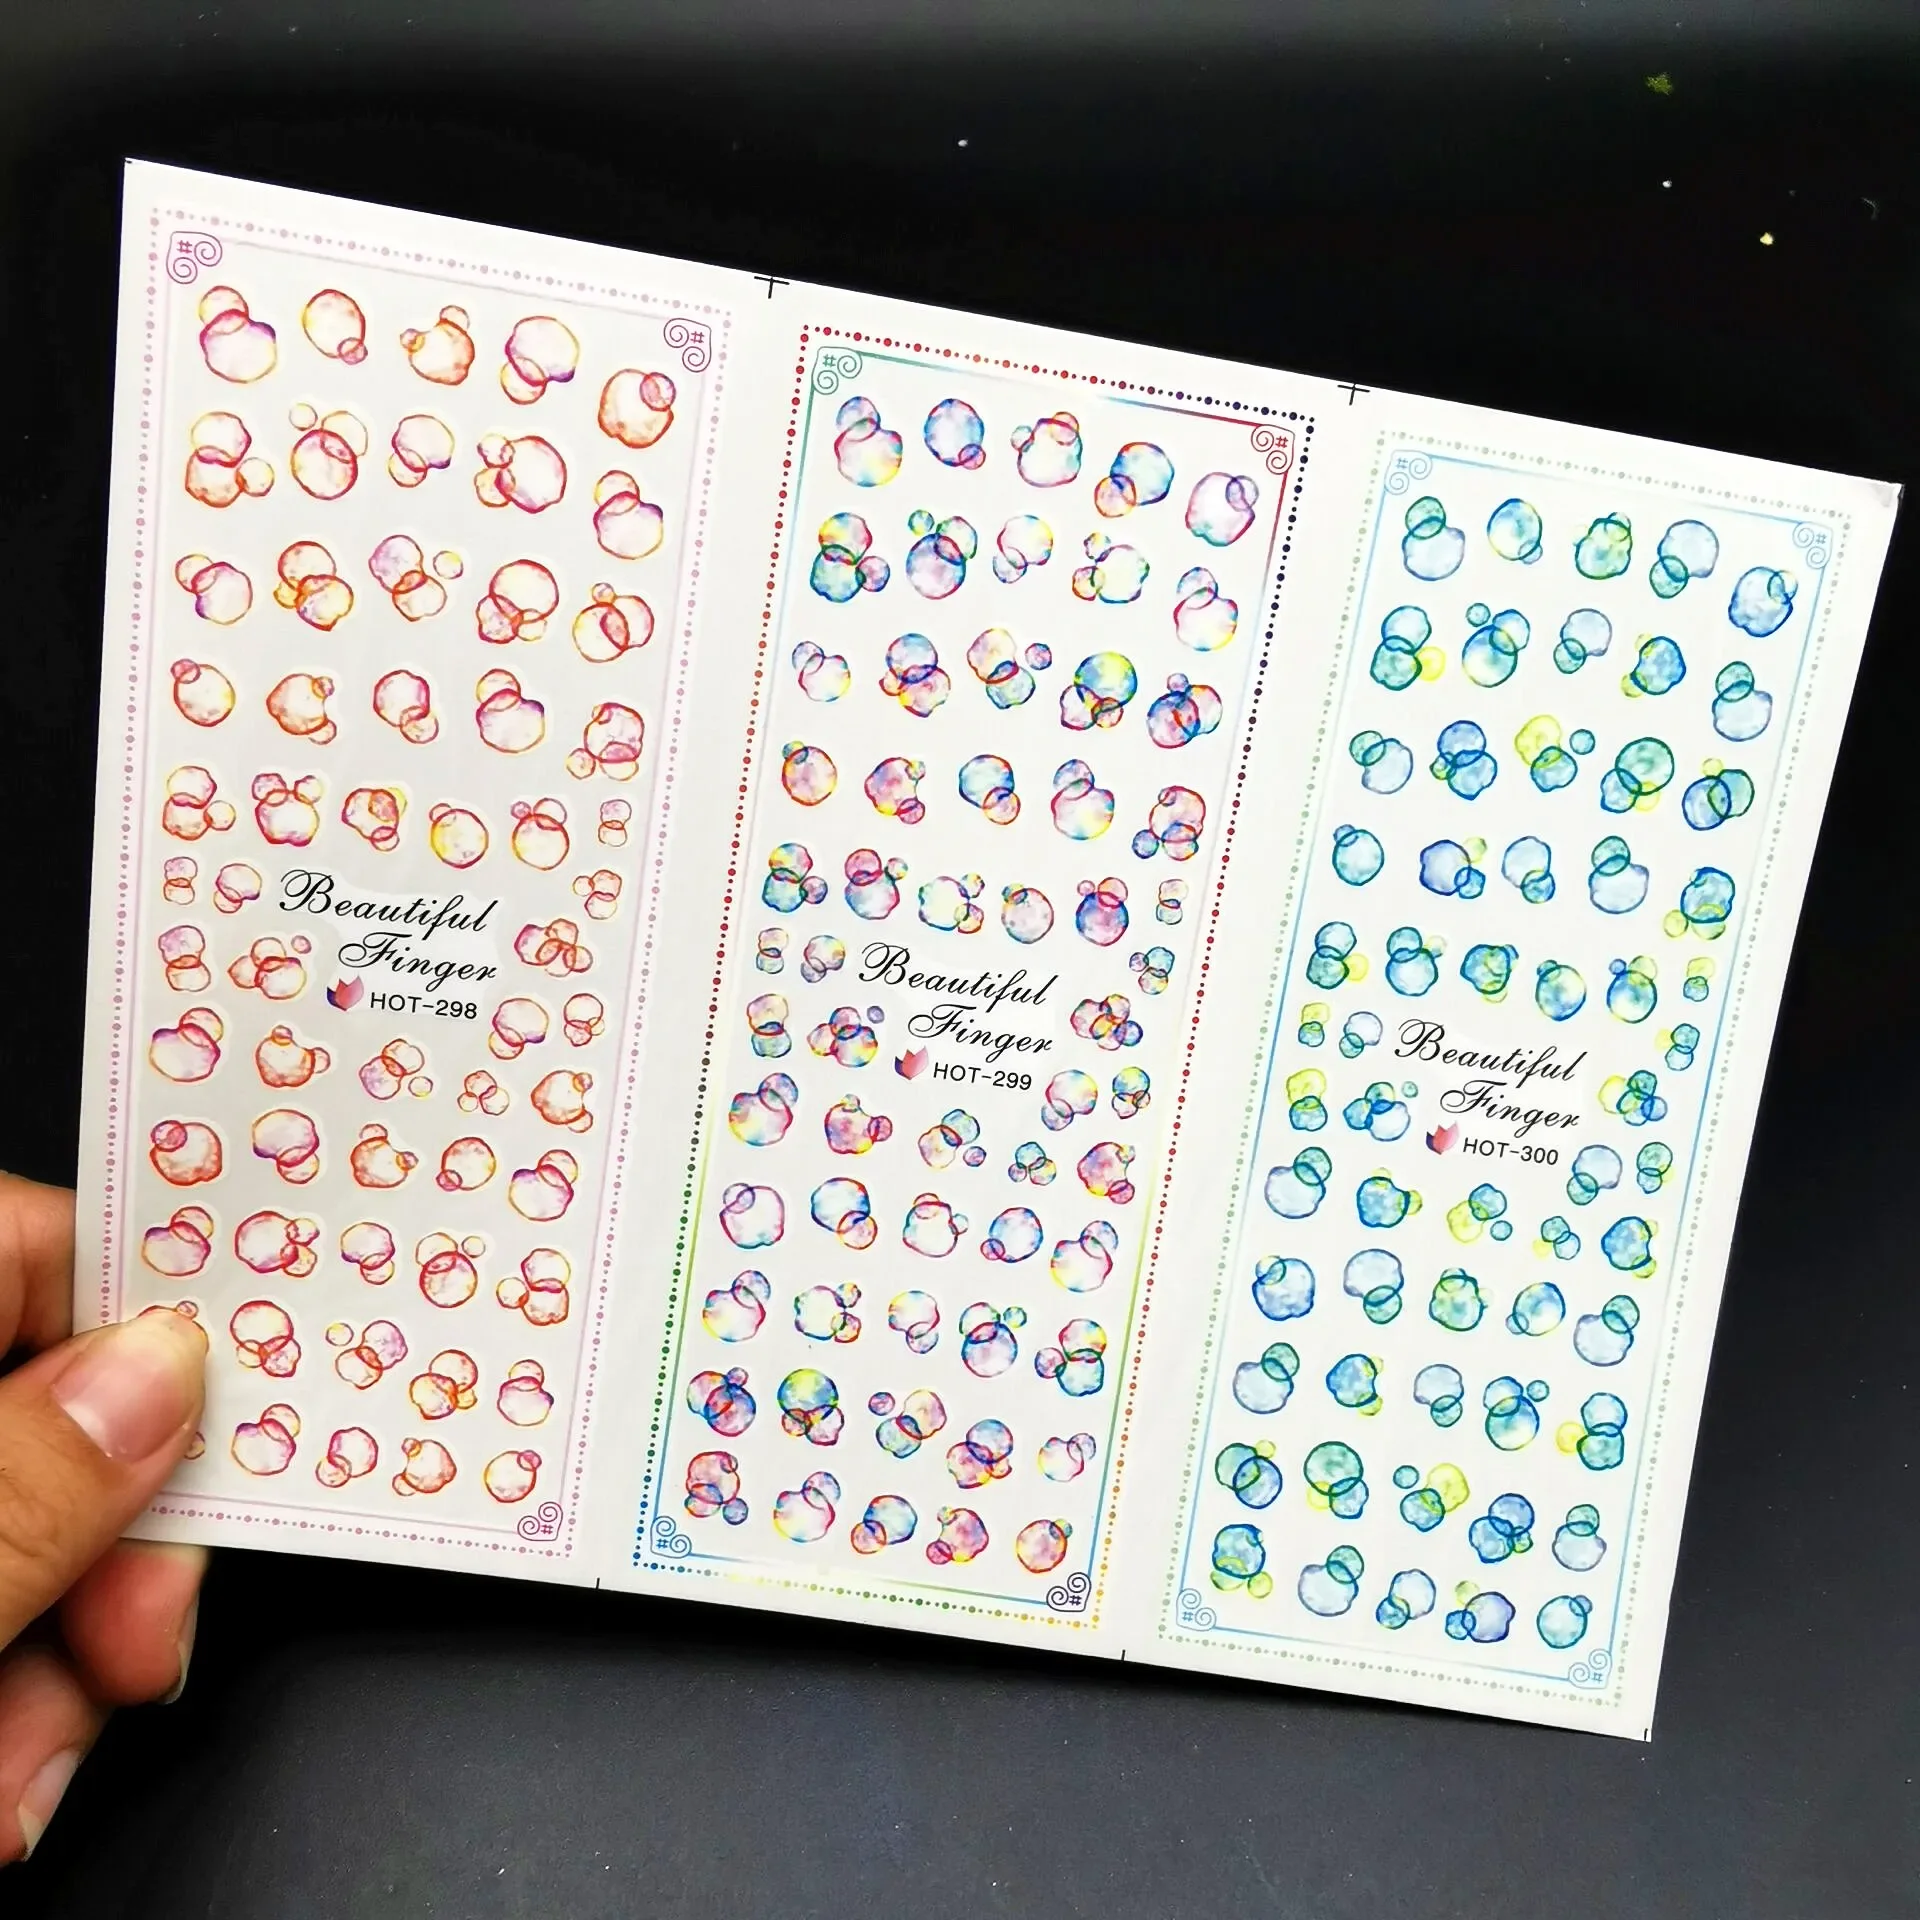 Beautiful
Finger
HOT-298
Beautiful
Finger
HOT-299
Beautiful
Finger
HOT-300